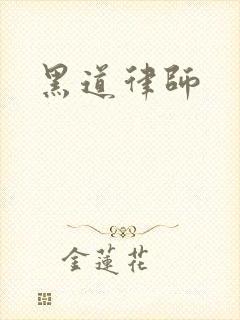 黑道律師
金蓮花